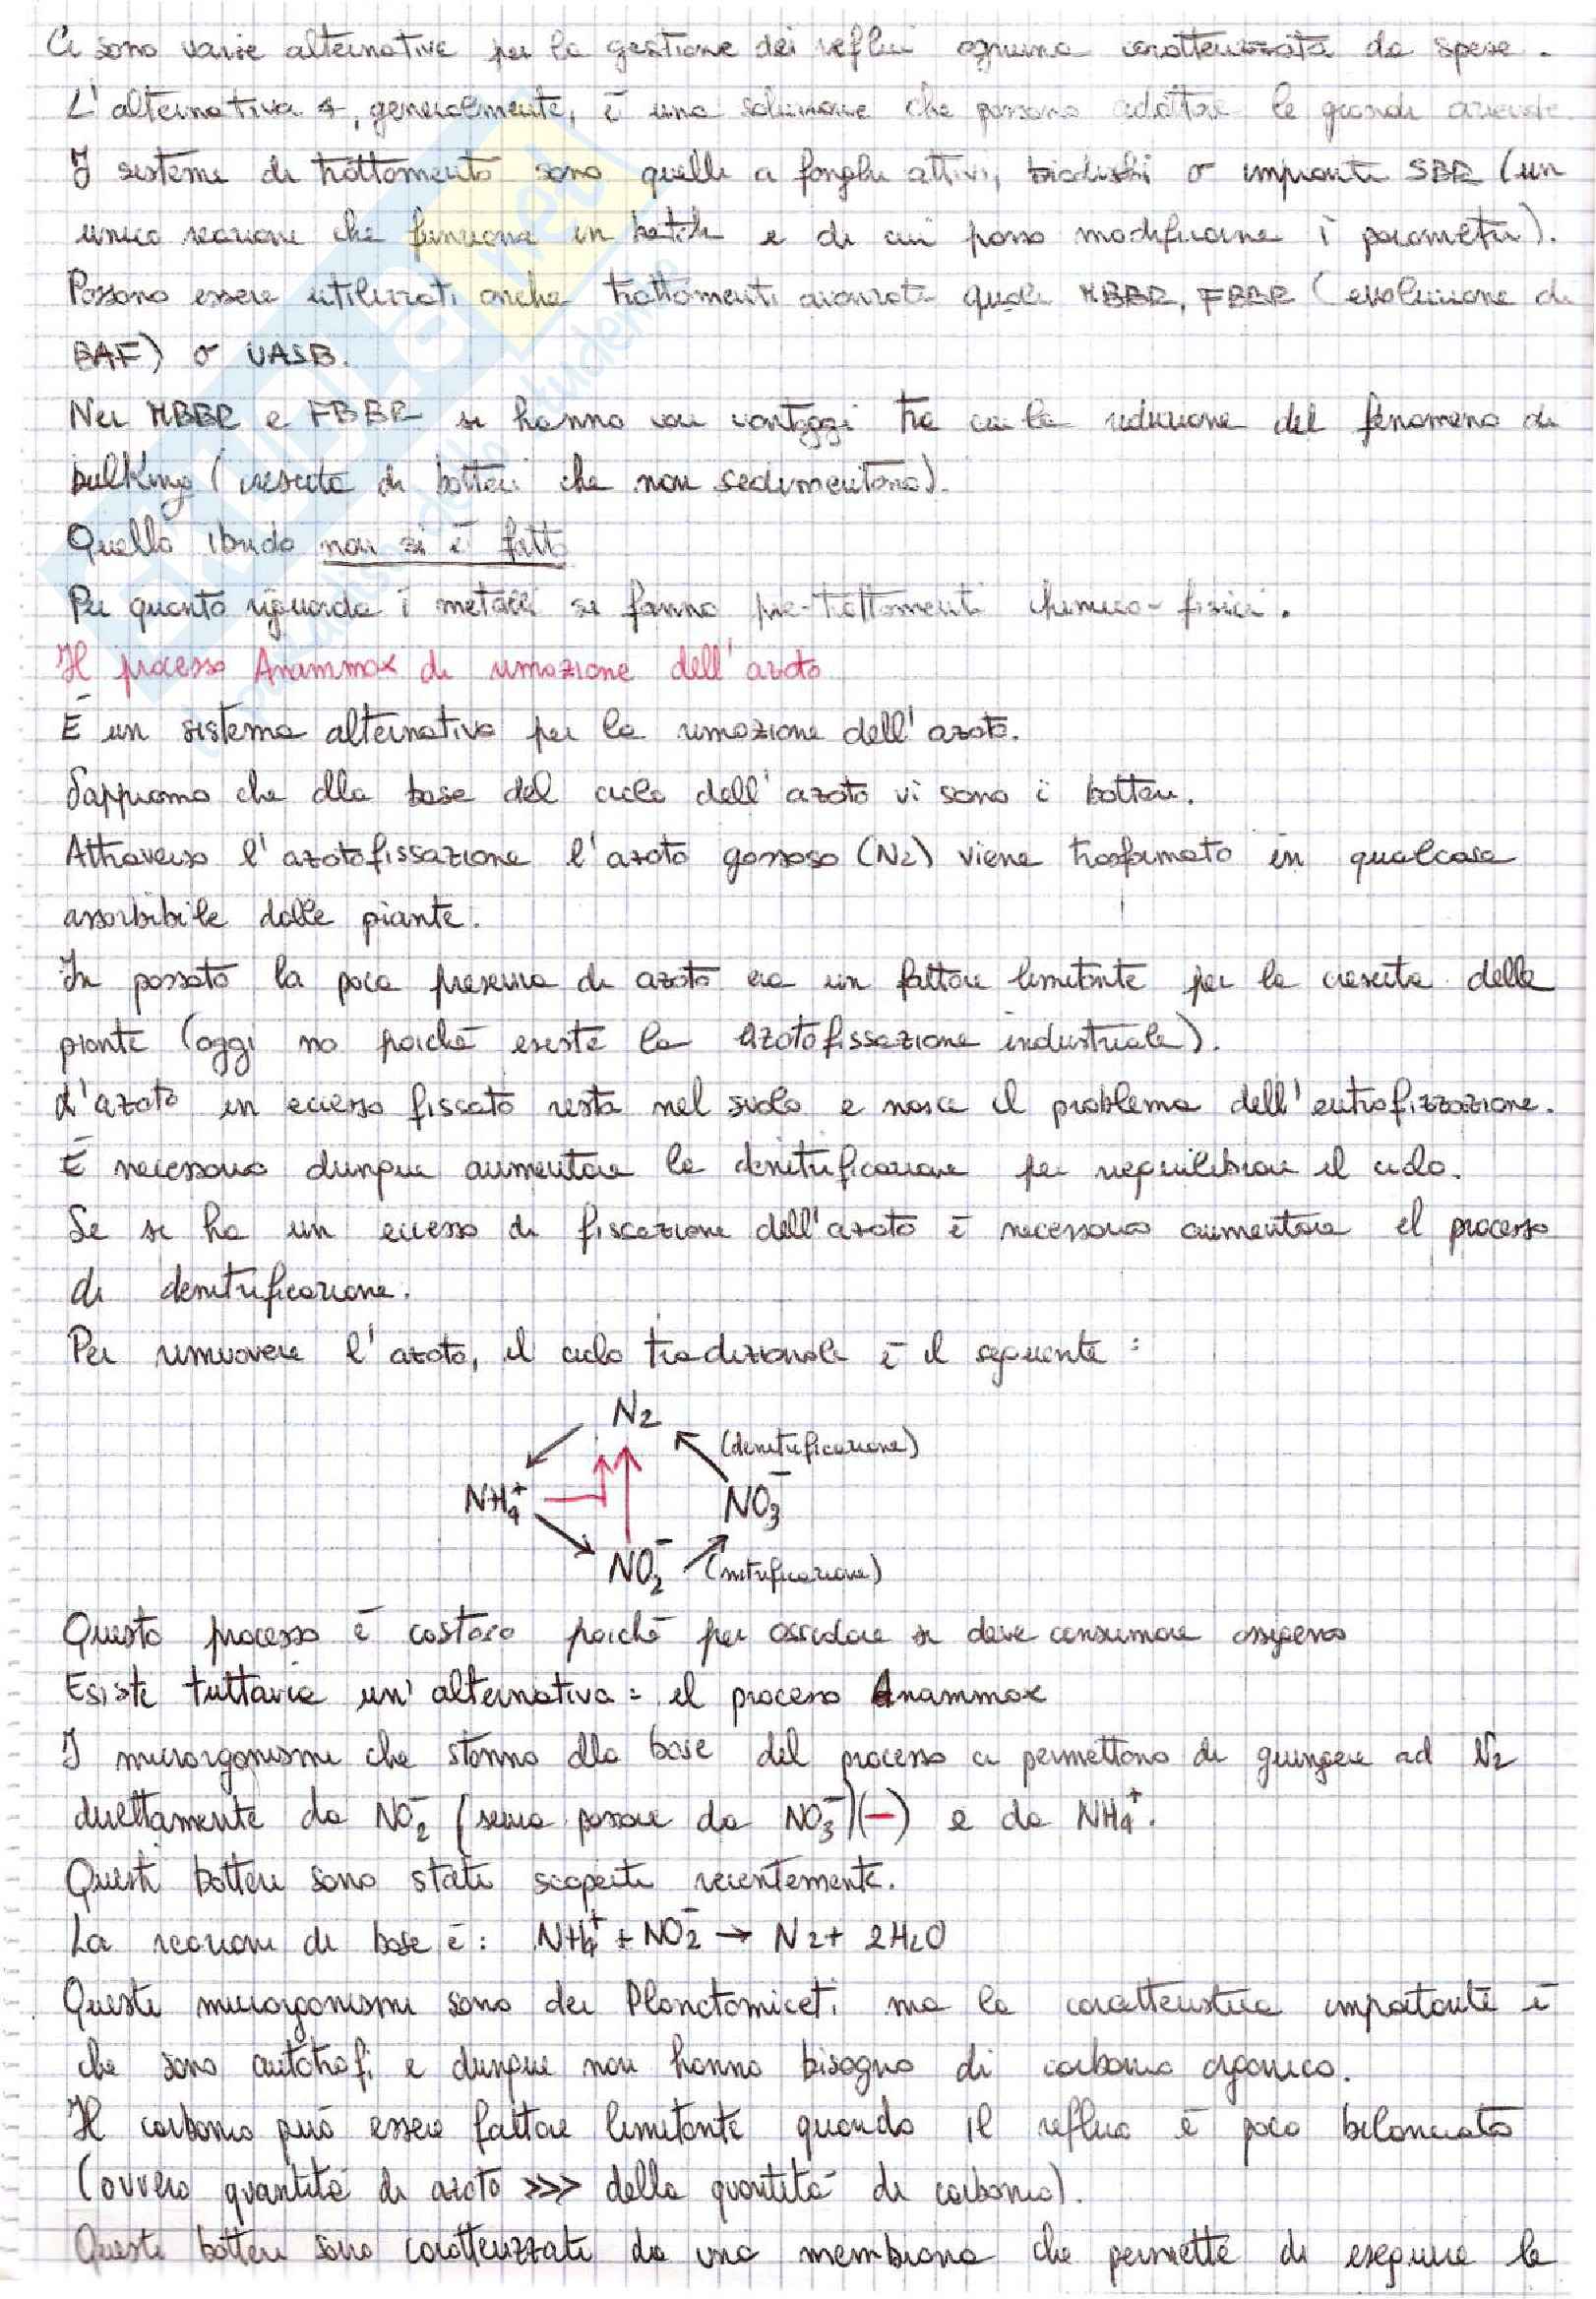 Ci sono varie alternative per la gestione dei reflui ognuna caratterizzata da spese.
L'alternativa 4, generalmente, è una soluzione che possono adottare le grandi aziende
I sistemi di trattamento sono quelli a fanghi attivi, biodischi o impianti SBR (un
unico reazione che funziona in batch e di cui posso modificarne i parametri).
Possono essere utilizzati anche trattamenti avanzati quali MBBR, FBBR (evoluzione di
BAF) o UASB.
Nei MBBR e FBBR si hanno vari vantaggi tra cui la riduzione del fenomeno di
bulking (crescita di batteri che non sedimentano).
Quello ibrido non si è fatto
Per quanto riguarda i metalli si fanno pre-trattamenti chimico-fisici.
Il processo Anammox di rimozione dell'azoto
È un sistema alternativo per la rimozione dell'azoto.
Sappiamo che alla base del ciclo dell'azoto vi sono i batteri.
Attraverso l'azotofissazione l'azoto gassoso (N2) viene trasformato in qualcosa
assorbibile dalle piante.
In passato la poca presenza di azoto era un fattore limitante per la crescita delle
piante (oggi no poiché esiste la azotofissazione industriale).
L'azoto in eccesso fissato resta nel suolo e nasce il problema dell'eutrofizzazione.
È necessario dunque aumentare la denitrificazione per riequilibrare il ciclo.
Se si ha un eccesso di fissazione dell'azoto è necessario aumentare il processo
di denitrificazione.
Per rimuovere l'azoto, il ciclo tradizionale è il seguente:
N2
(denitrificazione)
NH4+ NO3-
NO2- (nitrificazione)
Questo processo è costoso poiché per ossidare si deve consumare ossigeno
Esiste tuttavia un'alternativa: il processo Anammox
I microrganismi che stanno alla base del processo ci permettono di giungere ad N2
direttamente da NO2- (senza passare da NO3-)(—) e da NH4+.
Questi batteri sono stati scoperti recentemente.
La reazione di base è: NH4+ + NO2- → N2 + 2H2O
Questi microrganismi sono dei Planctomiceti ma la caratteristica importante è
che sono autotrofi e dunque non hanno bisogno di carbonio organico.
Il carbonio può essere fattore limitante quando il refluo è poco bilanciato
(ovvero quantità di azoto >>> della quantità di carbonio).
Questi batteri sono caratterizzati da una membrana che permette di eseguire la